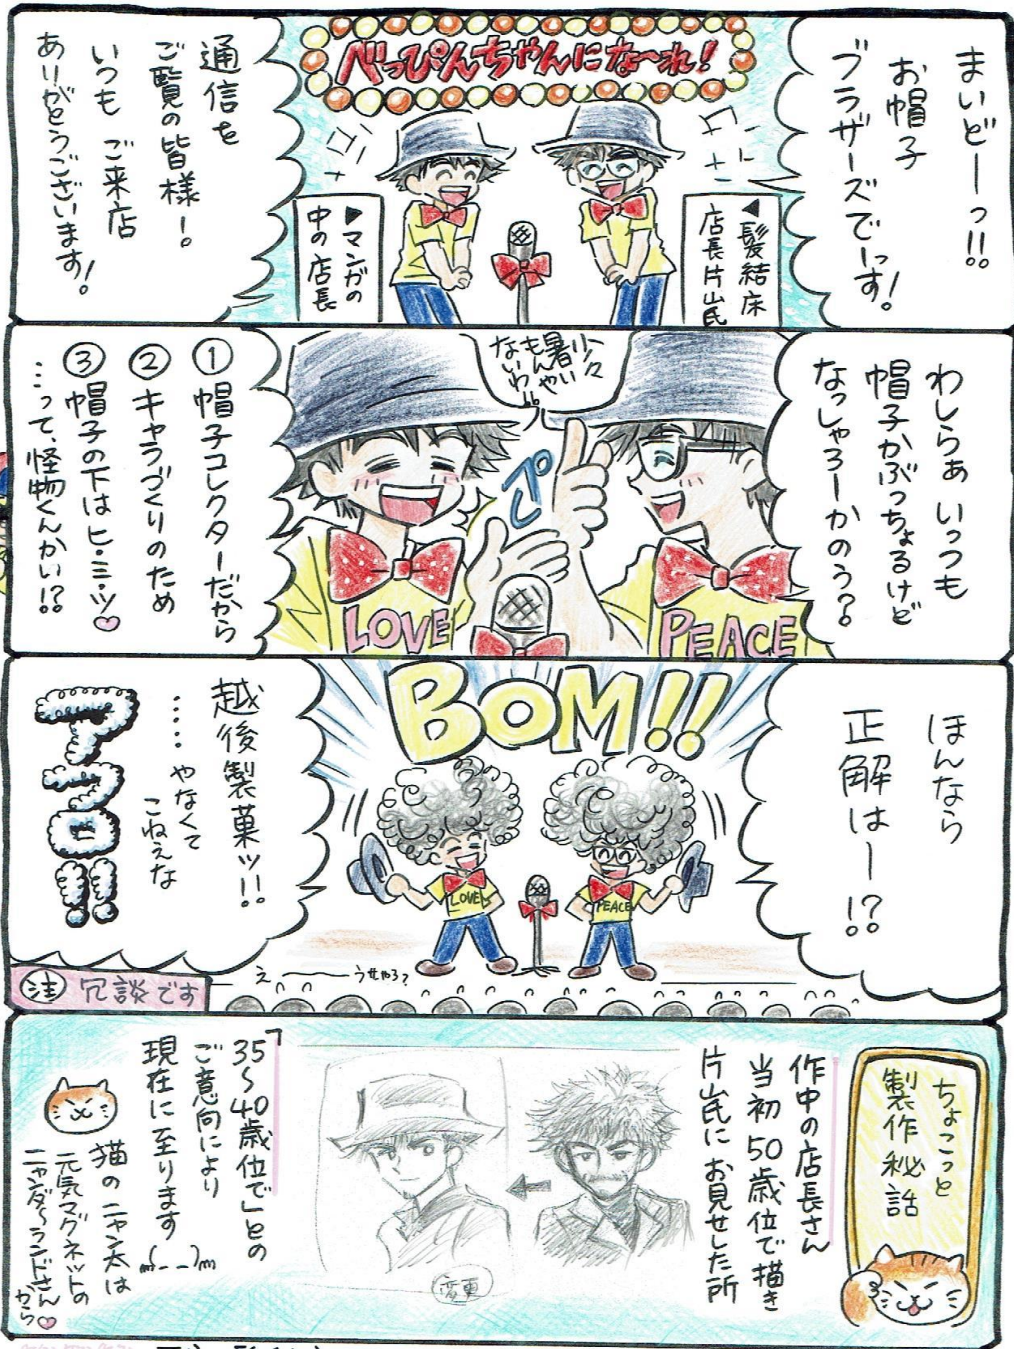 べっぴんちゃんにな〜れ!
まいどーっ!!
お帽子
ブラザーズでーっす!
◀髪結床
店長片山氏
▶マンガの
中の店長
通信を
ご覧の皆様!
いつも ご来店
ありがとうございます!
わしらぁ いっつも
帽子かぶっちょるけど
なっしゃろーかのう?
少々
暑い
もんや
ないわ!!
ペし
LOVE
PEACE
①帽子コレクターだから
②キャラづくりのため
③帽子の下はヒ・ミ・ツ♡
…って、怪物くんかい!?
ほんなら
正解はー!?
BOM!!
LOVE
PEACE
越後製菓ッ!!
……やなくて
こねえな
アフロ!!
えーーうせやろ?
注 冗談です
ちょこっと
製作秘話
作中の店長さん
当初50歳位で描き
片山氏にお見せした所
変更
「35〜40歳位で」との
ご意向により
現在に至ります m(_ _)m
猫のニャン太は
元気マグネットの
ニャンダ〜ランドさん
から♡